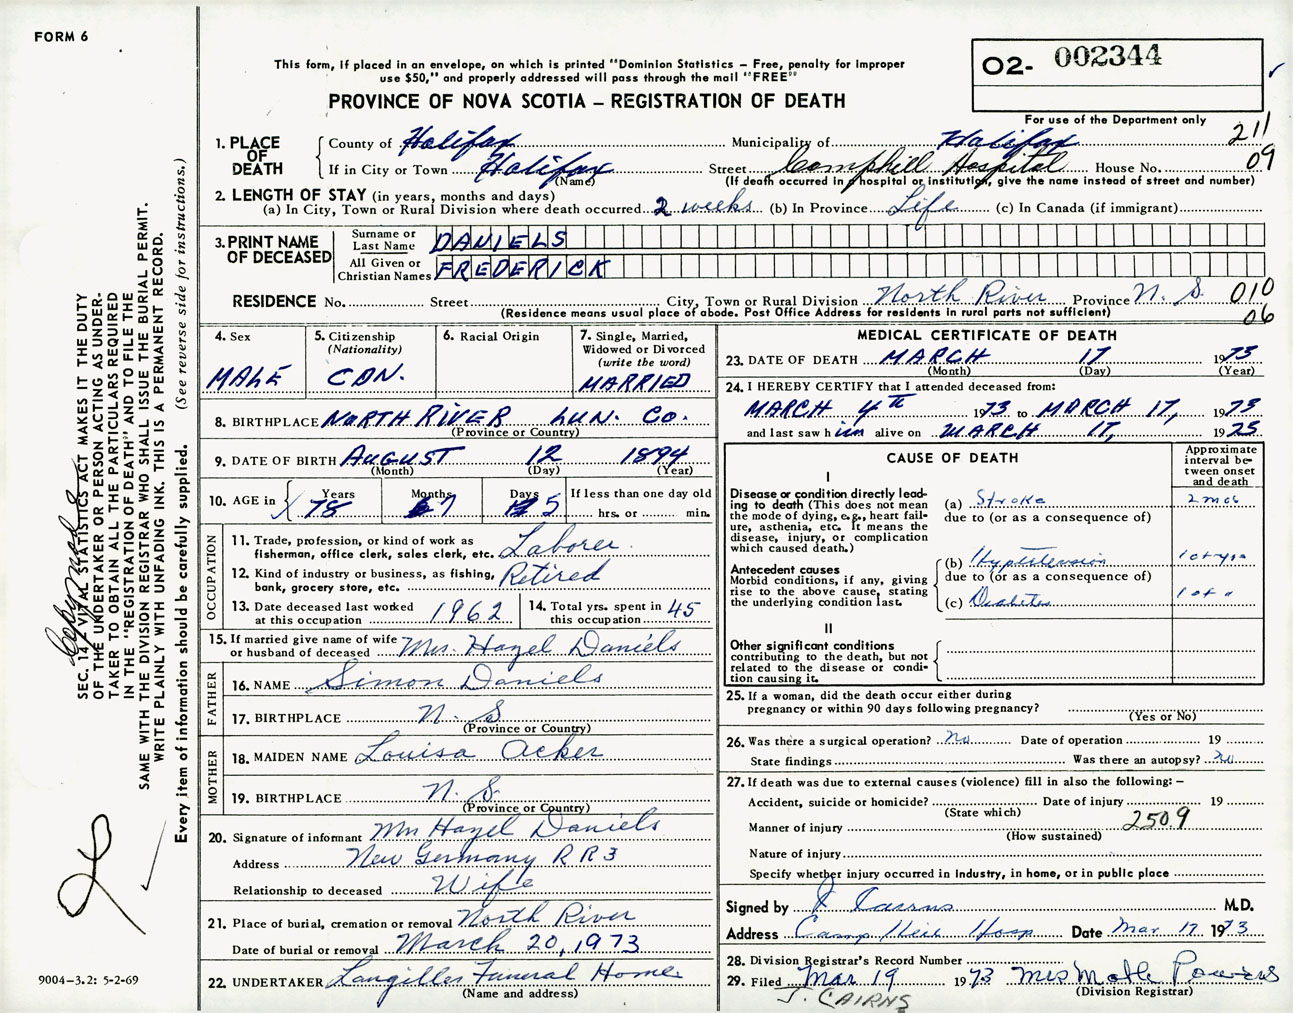 FORM 6
This form, if placed in an envelope, on which is printed "Dominion Statistics – Free, penalty for improper
use $50," and properly addressed will pass through the mail "FREE"
PROVINCE OF NOVA SCOTIA – REGISTRATION OF DEATH
O2- 002344
For use of the Department only
1. PLACE OF DEATH
County of Halifax Municipality of Halifax 211
If in City or Town Halifax Street Camphill Hospital House No. 09
(Name) (If death occurred in a hospital or institution, give the name instead of street and number)
2. LENGTH OF STAY (in years, months and days)
(a) In City, Town or Rural Division where death occurred 2 weeks (b) In Province Life (c) In Canada (if immigrant)
3. PRINT NAME OF DECEASED
Surname or Last Name DANIELS
All Given or Christian Names FREDERICK
RESIDENCE No. Street City, Town or Rural Division North River Province N. S. 010
(Residence means usual place of abode. Post Office Address for residents in rural parts not sufficient) 06
4. Sex MALE
5. Citizenship (Nationality) CDN.
6. Racial Origin
7. Single, Married, Widowed or Divorced (write the word) MARRIED
8. BIRTHPLACE NORTH RIVER LUN. CO.
(Province or Country)
9. DATE OF BIRTH AUGUST 12 1894
(Month) (Day) (Year)
10. AGE in Years 78 Months 7 Days 5 If less than one day old
hrs. or min.
OCCUPATION
11. Trade, profession, or kind of work as
fisherman, office clerk, sales clerk, etc. Laborer
12. Kind of industry or business, as fishing,
bank, grocery store, etc. Retired
13. Date deceased last worked
at this occupation 1962
14. Total yrs. spent in
this occupation 45
15. If married give name of wife
or husband of deceased Mrs. Hazel Daniels
FATHER
16. NAME Simon Daniels
17. BIRTHPLACE N. S.
(Province or Country)
MOTHER
18. MAIDEN NAME Louisa Acker
19. BIRTHPLACE N. S.
(Province or Country)
20. Signature of informant Mrs Hazel Daniels
Address New Germany R R 3
Relationship to deceased Wife
21. Place of burial, cremation or removal North River
Date of burial or removal March 20, 1973
22. UNDERTAKER Langilles Funeral Home
(Name and address)
MEDICAL CERTIFICATE OF DEATH
23. DATE OF DEATH MARCH 17 1973
(Month) (Day) (Year)
24. I HEREBY CERTIFY that I attended deceased from:
MARCH 4th 1973 to MARCH 17, 1973
and last saw him alive on MARCH 17, 1925.
CAUSE OF DEATH
Approximate interval between onset and death
I
Disease or condition directly leading to death (This does not mean the mode of dying, e.g., heart failure, asthenia, etc. It means the disease, injury, or complication which caused death.)
(a) Stroke 2 mos
due to (or as a consequence of)
Antecedent causes
Morbid conditions, if any, giving rise to the above cause, stating the underlying condition last.
(b) Hypertension 10+ yrs
due to (or as a consequence of)
(c) Diabetes 10+ "
II
Other significant conditions contributing to the death, but not related to the disease or condition causing it.
25. If a woman, did the death occur either during
pregnancy or within 90 days following pregnancy?
(Yes or No)
26. Was there a surgical operation? No Date of operation 19
State findings Was there an autopsy? No
27. If death was due to external causes (violence) fill in also the following: –
Accident, suicide or homicide? Date of injury 19
(State which)
Manner of injury 250.9
(How sustained)
Nature of injury
Specify whether injury occurred in industry, in home, or in public place
Signed by J Cairns M.D.
Address Camp Hill Hosp Date Mar 17 1973
28. Division Registrar's Record Number
29. Filed Mar 19 1973 Mrs Powers
(Division Registrar)
J. CAIRNS
SEC. 14 – VITAL STATISTICS ACT MAKES IT THE DUTY
OF THE UNDERTAKER OR PERSON ACTING AS UNDER-
TAKER TO OBTAIN ALL THE PARTICULARS REQUIRED
IN THE "REGISTRATION OF DEATH" AND TO FILE THE
SAME WITH THE DIVISION REGISTRAR WHO SHALL ISSUE THE BURIAL PERMIT.
WRITE PLAINLY WITH UNFADING INK. THIS IS A PERMANENT RECORD.
Every item of information should be carefully supplied. (See reverse side for instructions.)
9004-3.2: 5-2-69